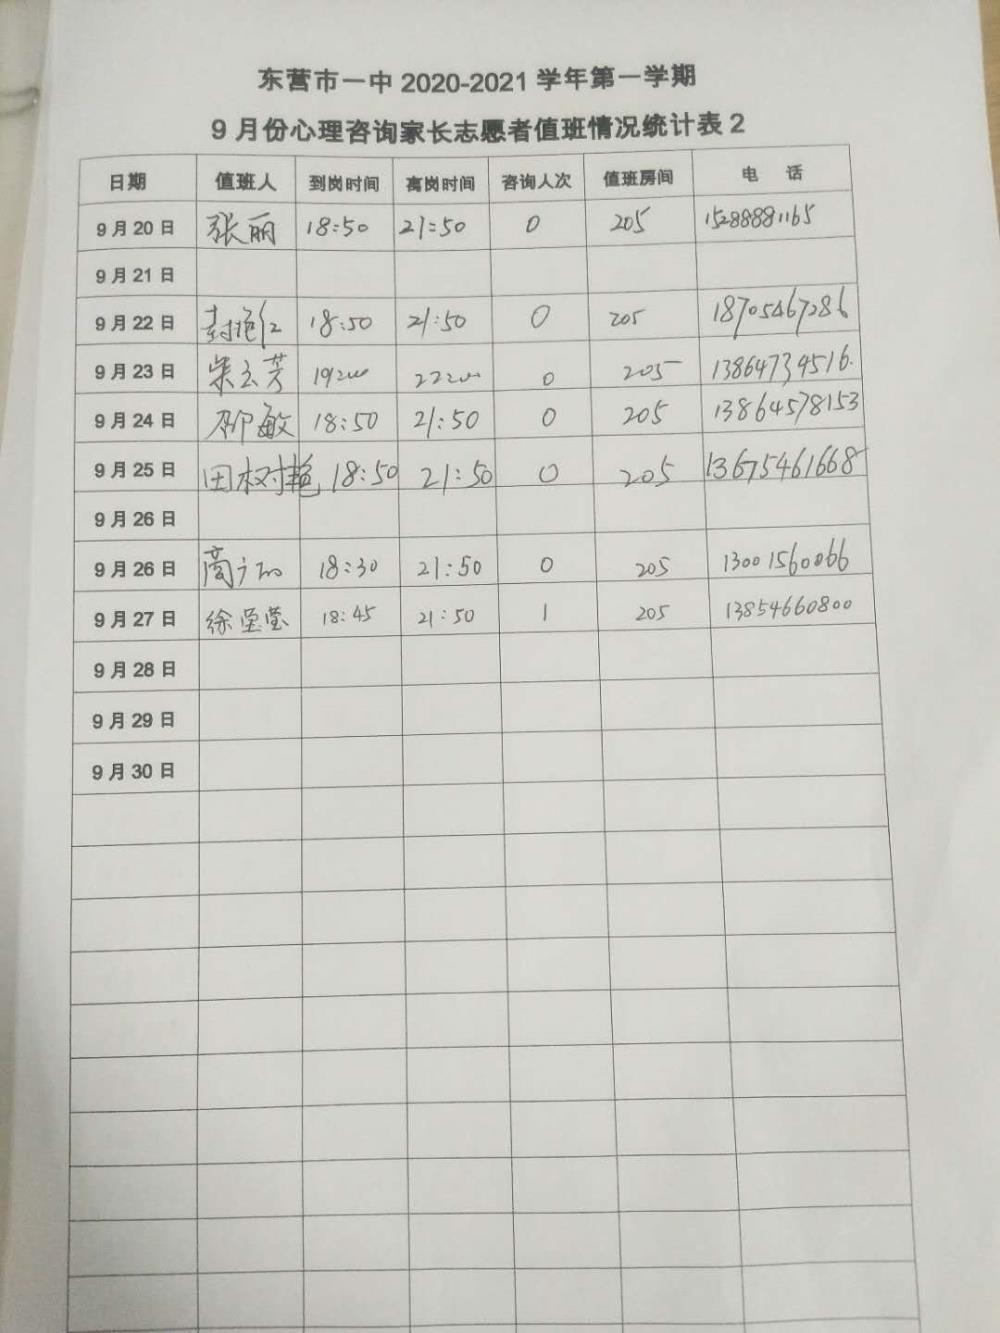 东营市一中 2020-2021 学年第一学期
9 月份心理咨询家长志愿者值班情况统计表 2
日期 值班人 到岗时间 离岗时间 咨询人次 值班房间 电 话
9 月 20 日 张丽 18:50 21:50 0 205 15288881165
9 月 21 日
9 月 22 日 18:50 21:50 0 205 18705467286
9 月 23 日 19:00 22:00 0 205 13864734516
9 月 24 日 柳敏 18:50 21:50 0 205 13864578153
9 月 25 日 田树艳 18:50 21:50 0 205 13675461668
9 月 26 日
9 月 26 日 18:30 21:50 0 205 13001560066
9 月 27 日 徐莹莹 18:45 21:50 1 205 13854660800
9 月 28 日
9 月 29 日
9 月 30 日